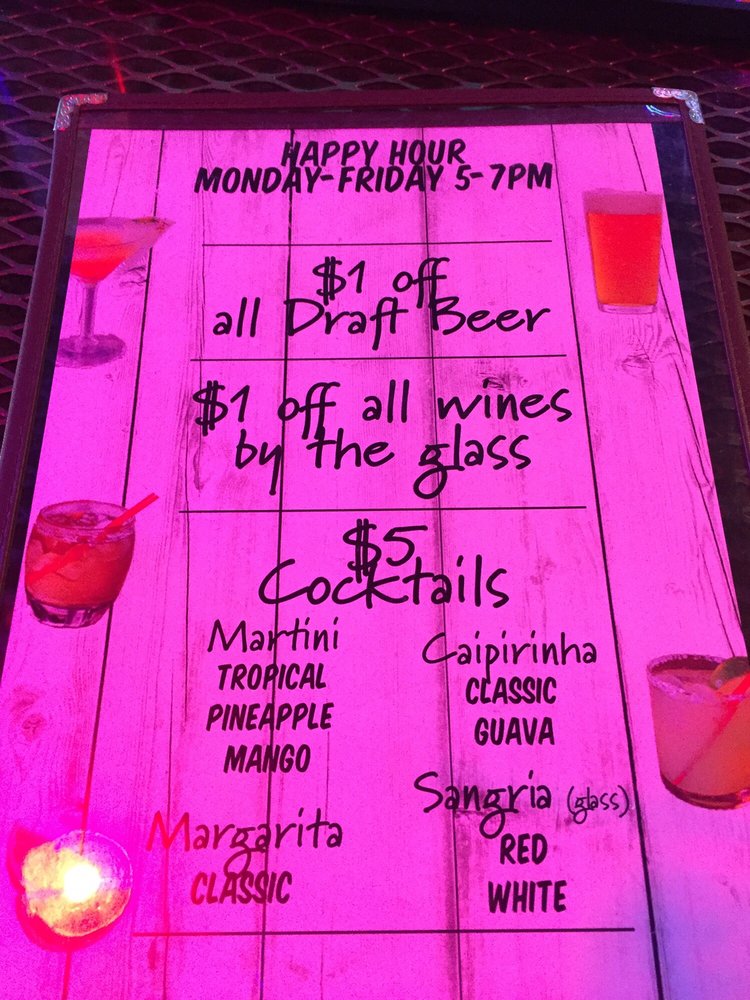 HAPPY HOUR
MONDAY-FRIDAY 5-7PM
$1 off
all Draft Beer
$1 off all wines
by the glass
$5
Cocktails
Martini
TROPICAL
PINEAPPLE
MANGO
Caipirinha
CLASSIC
GUAVA
Margarita
CLASSIC
Sangria (glass)
RED
WHITE